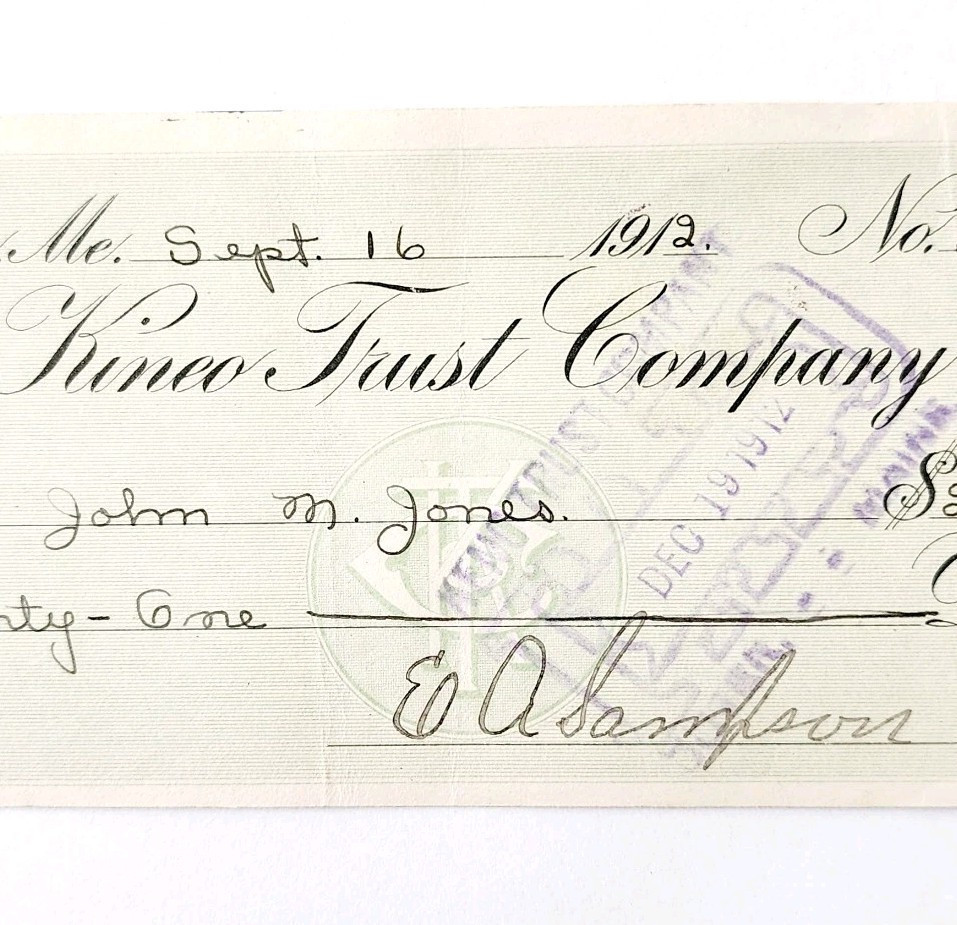 Me. Sept. 16 1912. No.
Kineo Trust Company
John M. Jones. $
rty-One
E A Sampson
TRUST COMPANY
DEC 19 1912
MAINE